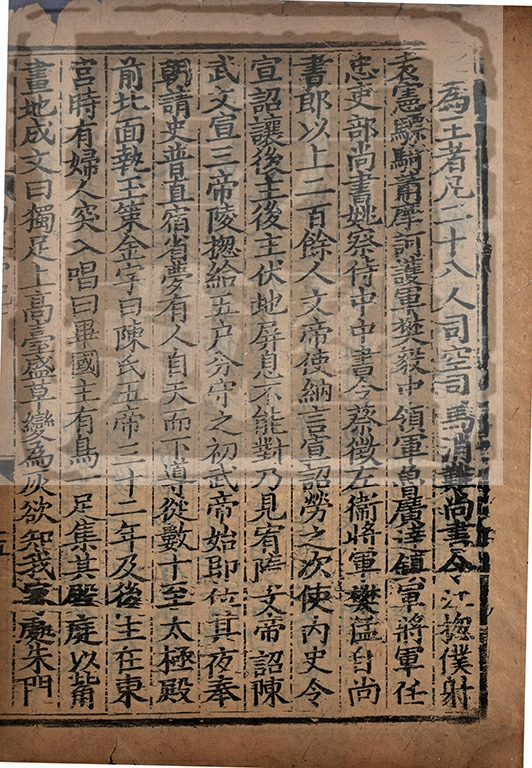 為王者凡二十八人司空司馬消難尚書令江揔僕射
袁憲驃騎蕭摩訶護軍樊毅中領軍魯廣達鎮軍將軍任
忠吏部尚書姚察侍中中書令蔡徵左衛將軍樊猛自尚
書郎以上二百餘人文帝使納言宣詔勞之次使內史令
宣詔讓後主後主伏地屏息不能對乃見宥隋文帝詔陳
武文宣三帝陵揔給五户分守之初武帝始即位其夜奉
朝請史普直宿省夢有人自天而下導從數十至太極殿
前北面執玉策金字曰陳氏五帝三十二年及後主在東
宮時有婦人突入唱曰畢國主有鳥一足集其殿庭以觜
畫地成文曰獨足上高臺盛草變為灰欲知我家處朱門